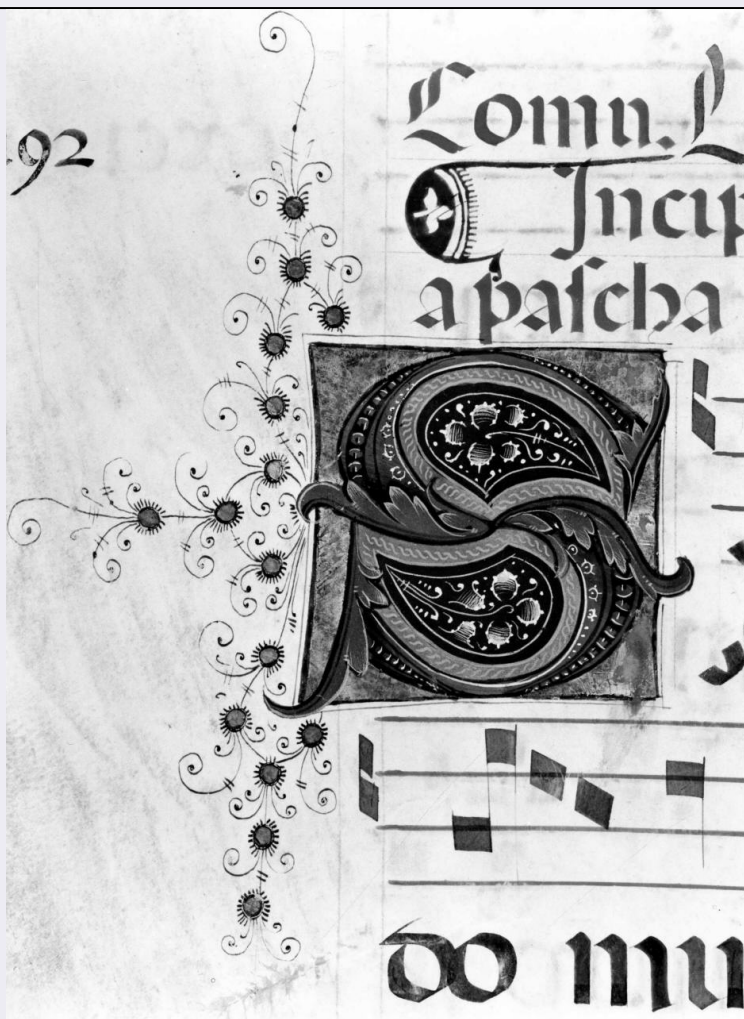 92
Comu.
Incip
a pascha
S
do mu